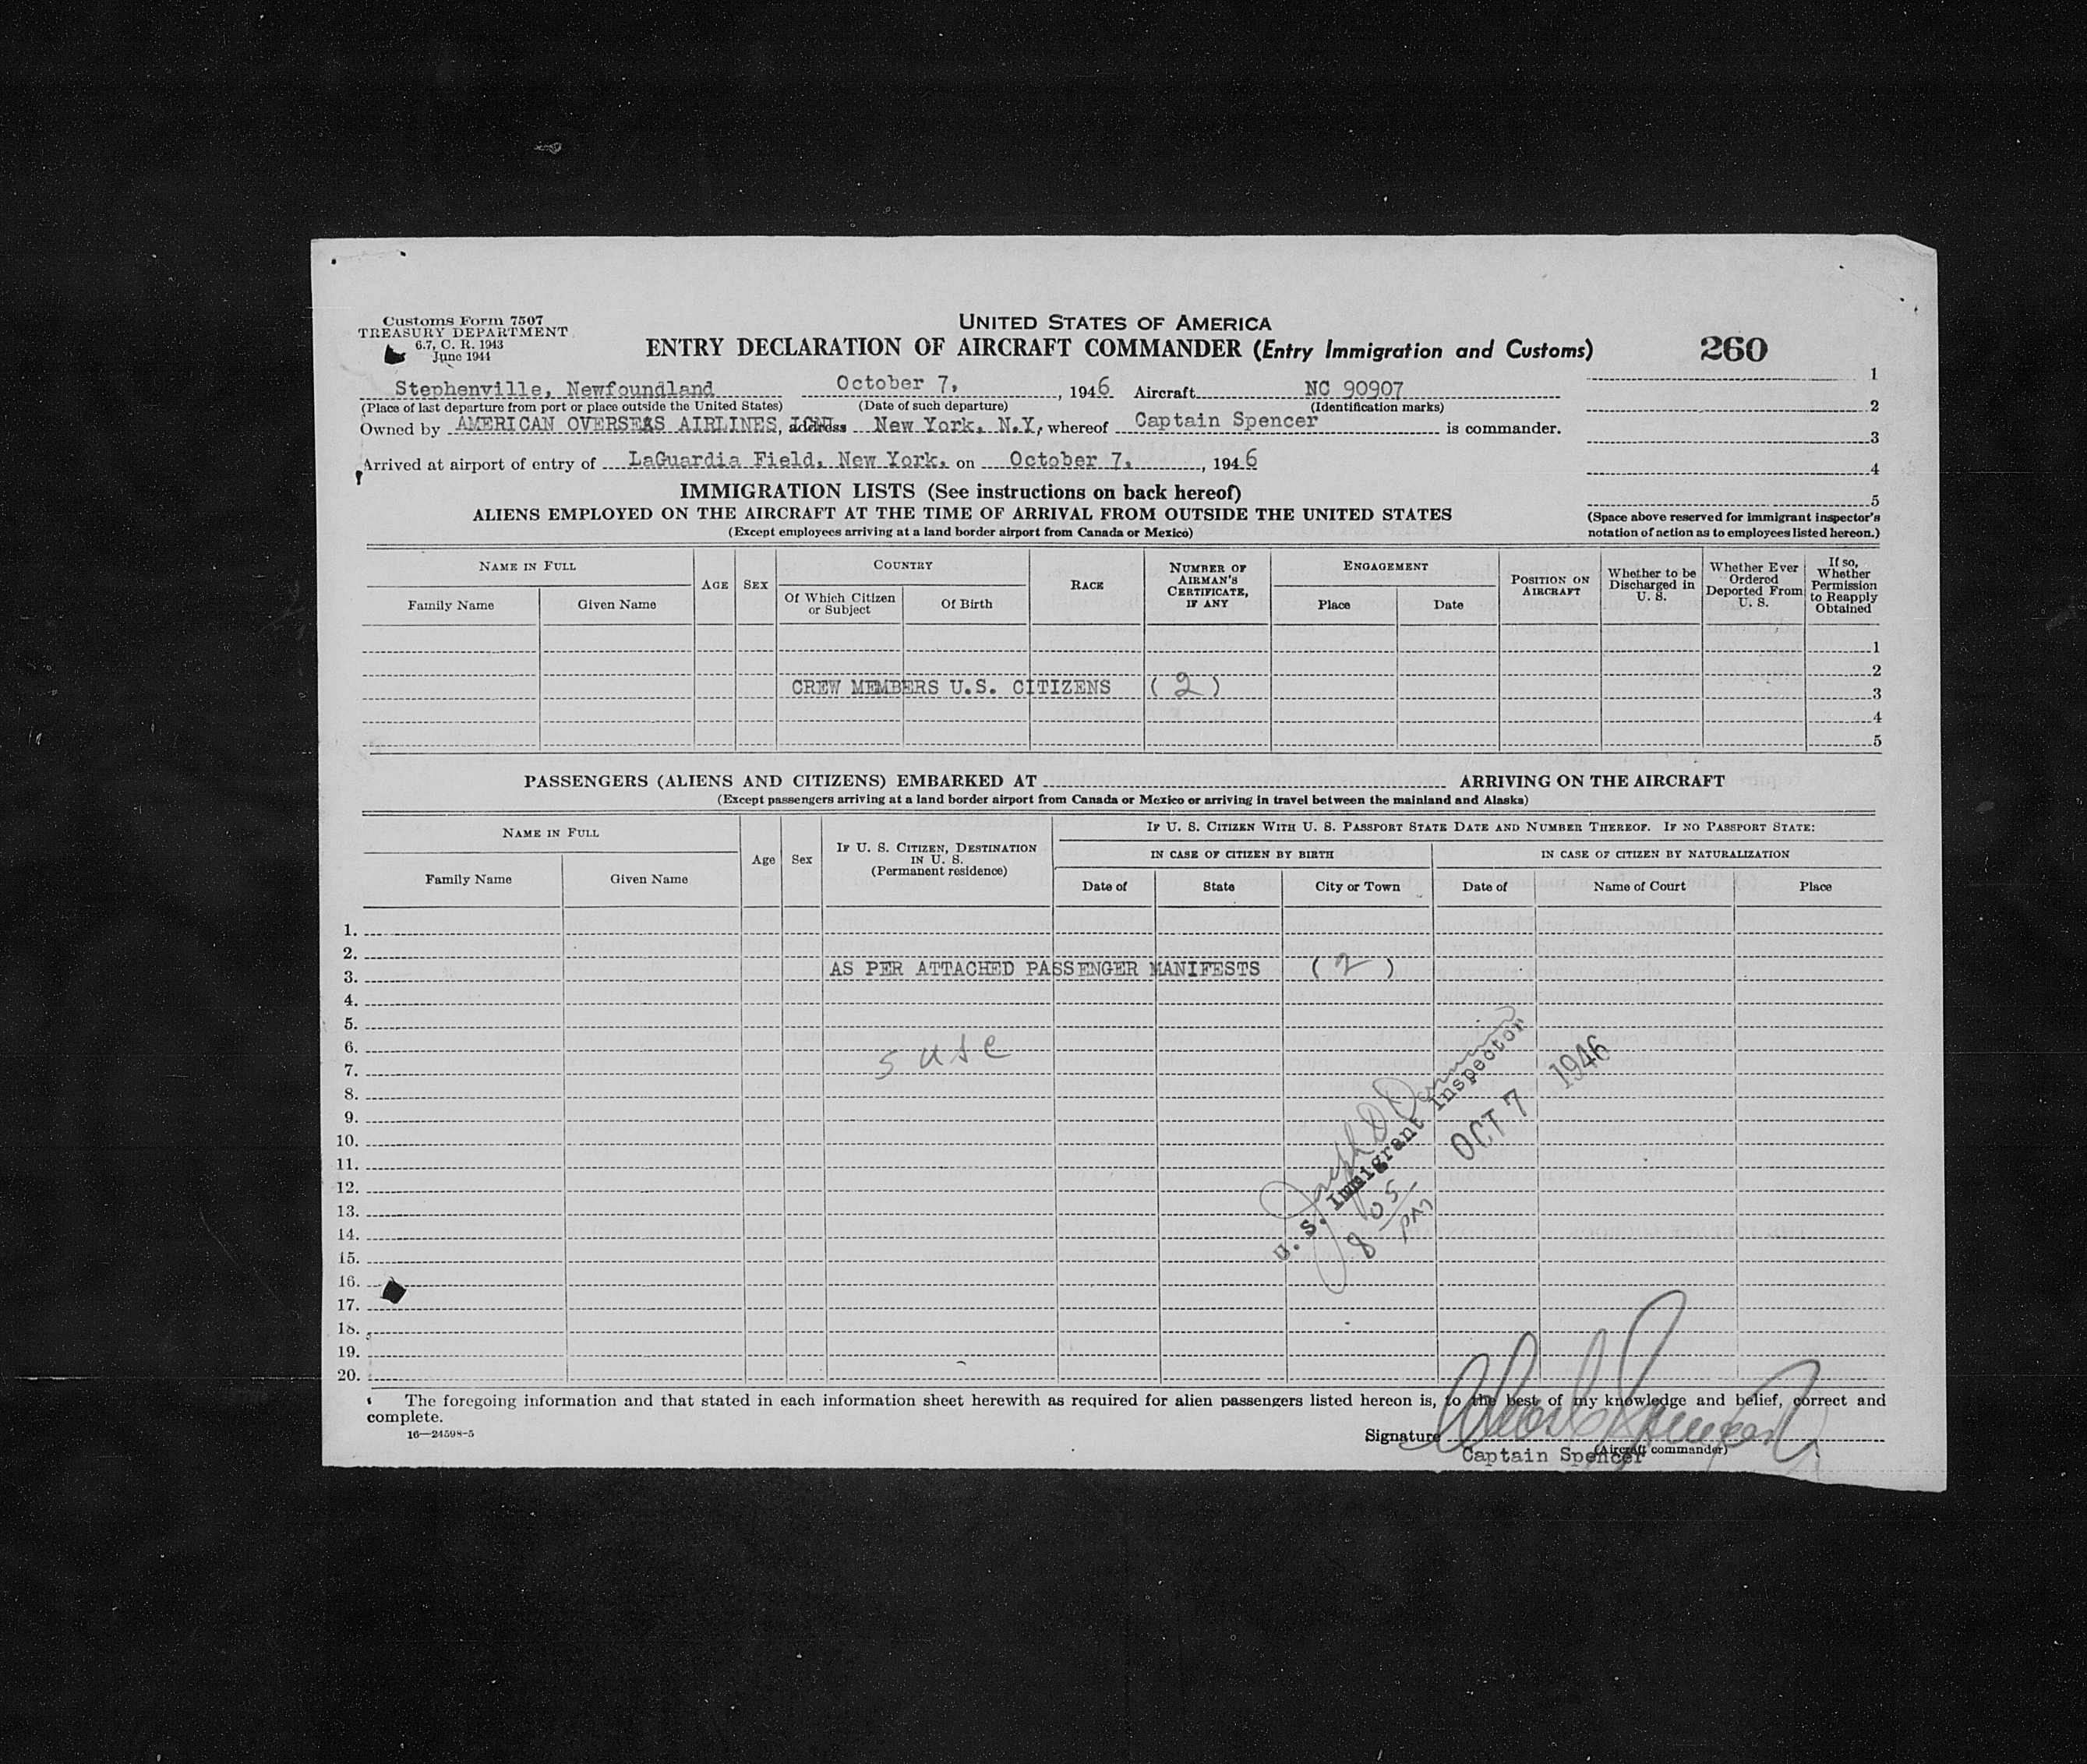 Customs Form 7507
TREASURY DEPARTMENT
6.7, C. R. 1943
June 1944
UNITED STATES OF AMERICA
ENTRY DECLARATION OF AIRCRAFT COMMANDER (Entry Immigration and Customs)
260
Stephenville, Newfoundland October 7, , 1946 Aircraft NC 90907
(Place of last departure from port or place outside the United States) (Date of such departure) (Identification marks)
Owned by AMERICAN OVERSEAS AIRLINES, address New York, N.Y, whereof Captain Spencer is commander.
Arrived at airport of entry of LaGuardia Field, New York, on October 7, , 1946
1
2
3
4
5
(Space above reserved for immigrant inspector's
notation of action as to employees listed hereon.)
IMMIGRATION LISTS (See instructions on back hereof)
ALIENS EMPLOYED ON THE AIRCRAFT AT THE TIME OF ARRIVAL FROM OUTSIDE THE UNITED STATES
(Except employees arriving at a land border airport from Canada or Mexico)
NAME IN FULL
Family Name
Given Name
AGE
SEX
COUNTRY
Of Which Citizen
or Subject
Of Birth
RACE
NUMBER OF
AIRMAN'S
CERTIFICATE,
IF ANY
ENGAGEMENT
Place
Date
POSITION ON
AIRCRAFT
Whether to be
Discharged in
U. S.
Whether Ever
Ordered
Deported From
U. S.
If so,
Whether
Permission
to Reapply
Obtained
1
2
CREW MEMBERS U.S. CITIZENS (2)
3
4
5
PASSENGERS (ALIENS AND CITIZENS) EMBARKED AT ARRIVING ON THE AIRCRAFT
(Except passengers arriving at a land border airport from Canada or Mexico or arriving in travel between the mainland and Alaska)
NAME IN FULL
Family Name
Given Name
Age
Sex
IF U. S. CITIZEN, DESTINATION
IN U. S.
(Permanent residence)
IF U. S. CITIZEN WITH U. S. PASSPORT STATE DATE AND NUMBER THEREOF. IF NO PASSPORT STATE:
IN CASE OF CITIZEN BY BIRTH
IN CASE OF CITIZEN BY NATURALIZATION
Date of
State
City or Town
Date of
Name of Court
Place
1.
2.
3. AS PER ATTACHED PASSENGER MANIFESTS (2)
4.
5.
6.
5 usc
7.
8.
9.
10.
11.
12.
13.
14.
15.
16.
17.
18.
19.
20.
U. S. Immigrant Inspector
OCT 7 1946
8 05
PM
The foregoing information and that stated in each information sheet herewith as required for alien passengers listed hereon is, to the best of my knowledge and belief, correct and
complete.
16—24598-5
Signature
(Aircraft commander)
Captain Spencer